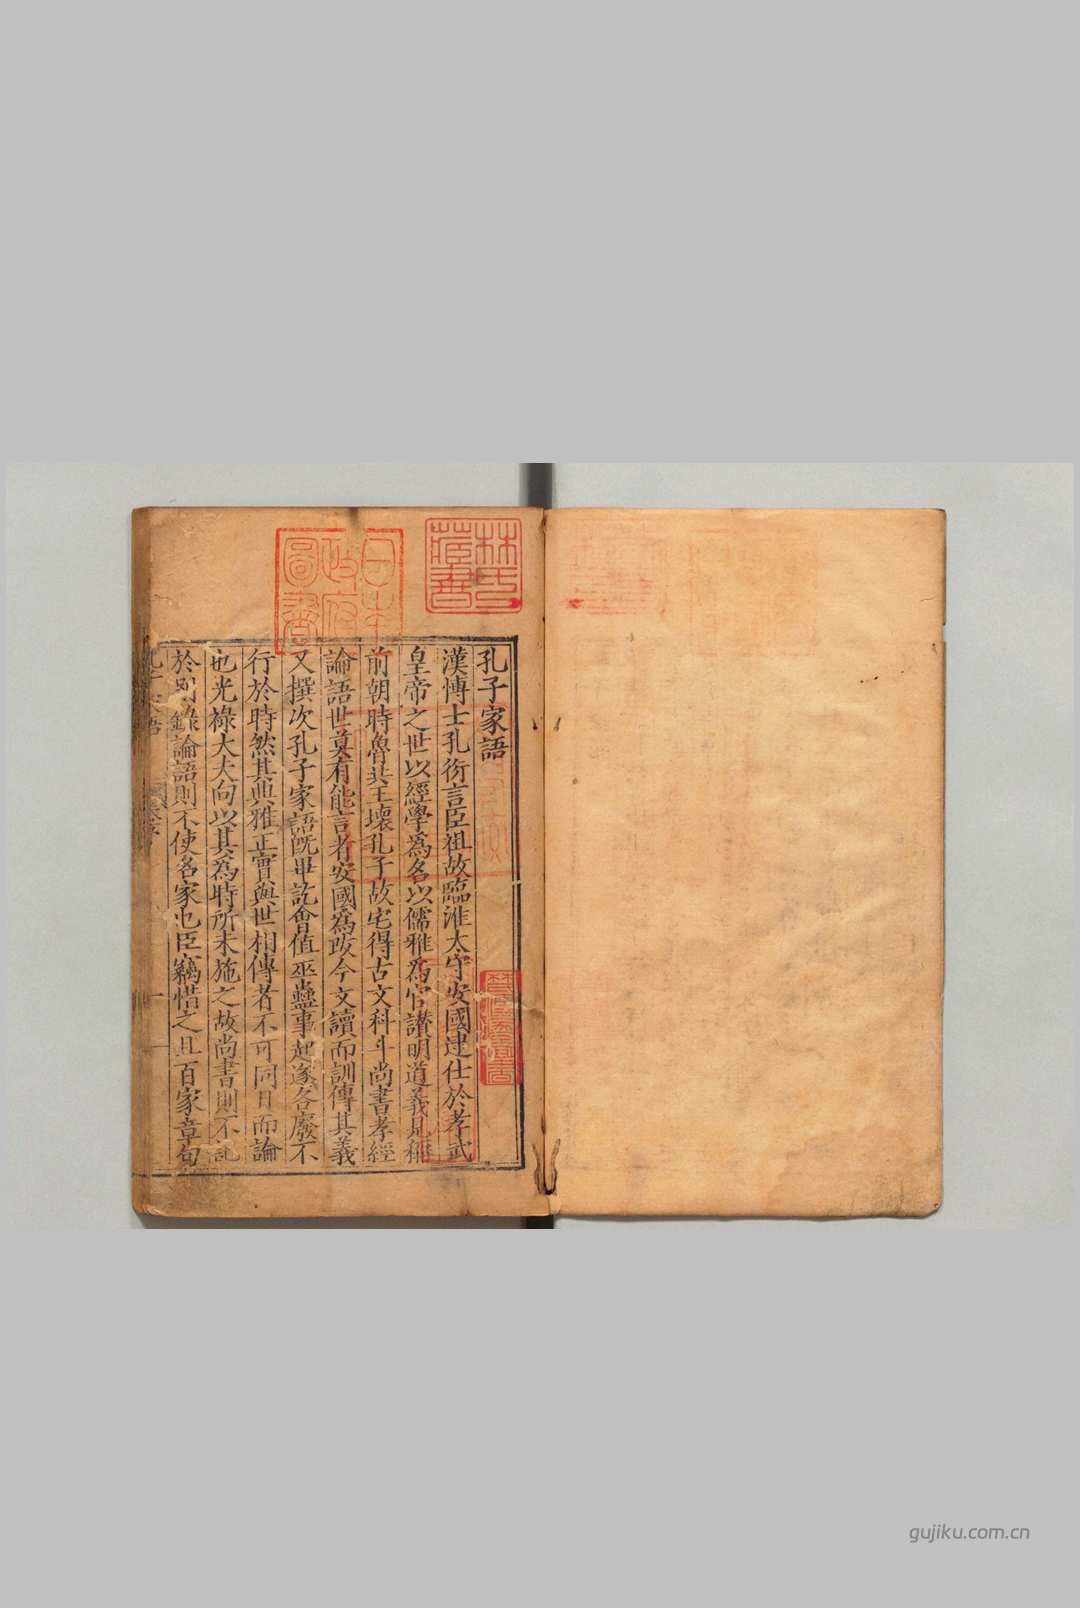 孔子家語
漢博士孔衍言臣祖故臨淮太守安國逮仕於孝武
皇帝之世以經學爲名以儒雅爲官讃明道義見稱
前朝時魯共王壞孔子故宅得古文科斗尚書孝經
論語世莫有能言者安國爲改今文讀而訓傳其義
又撰次孔子家語既畢訖會值巫蠱事起遂各廢不
行於時然其典雅正實與世相傳者不可同日而論
也光祿大夫向以其爲時所未施之故尚書則不記
於別錄論語則不使名家也臣竊惜之且百家章句
林氏藏書
日本政府圖書
gujiku.com.cn